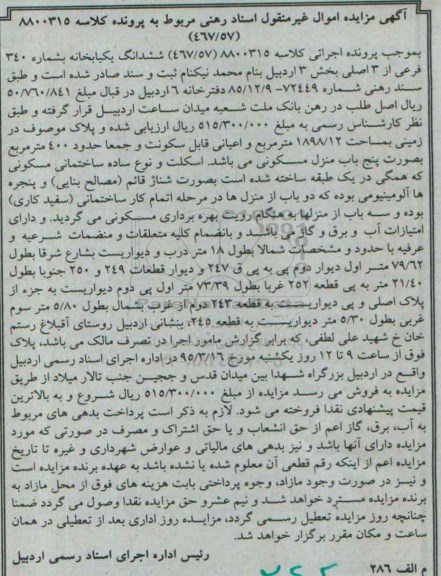 آگهی مزایده اموال غیرمنقول اسناد رهنی مربوط به پرونده کلاسه ۸۸۰۰۳۱۵
(۴۶۷/۵۷)
بموجب پرونده اجرائی کلاسه ۸۸۰۰۳۱۵ (۴۶۷/۵۷) ششدانگ یکبابخانه بشماره ۳۴۰
فرعی از ۳ اصلی بخش ۳ اردبیل بنام محمد نیکنام ثبت و سند صادر شده است و طبق
سند رهنی شماره ۷۲۴۴۹-۸۵/۱۲/۹ دفترخانه ۶ اردبیل در قبال مبلغ ۵۰/۷۶۰/۸۴۱
ریال اصل طلب در رهن بانک ملت شعبه میدان ساعت اردبیل قرار گرفته و طبق
نظر کارشناس رسمی به مبلغ ۵۱۵/۳۰۰/۰۰۰ ریال ارزیابی شده و پلاک موصوف در
زمینی بمساحت ۱۸۹۸/۱۲ مترمربع و اعیانی قابل سکونت و جمعا حدود ۴۰۰ مترمربع
بصورت پنج باب منزل مسکونی می باشد. اسکلت و نوع سازه ساختمانی مسکونی
که همگی در یک طبقه ساخته شده است بصورت شناژ قائم (مصالح بنایی) و پنجره
ها آلومینیومی بوده که دو باب از منزل ها در مرحله اتمام کار ساختمانی (سفید کاری)
بوده و سه باب از منزلها به هنگام رویت بهره برداری مسکونی می گردید. و دارای
امتیازات آب و برق و گاز می باشد و بانضمام کلیه متعلقات و منضمات شرعیه و
عرفیه با حدود و مشخصات شمالا بطول ۱۸ متر درب و دیواریست بشارع شرقا بطول
۷۹/۶۲ متر اول دیوار دوم پی به پی ق ۲۴۷ و دیوار قطعات ۲۴۹ و ۲۵۰ جنوبا بطول
۲۱/۴۰ متر به پی قطعه ۲۵۲ غربا بطول ۷۳/۳۹ متر اول پی دوم دیواریست به جزء از
پلاک اصلی و پی دیواریست به قطعه ۲۴۳ دوم از غرب بشمال بطول ۵/۸۰ متر سوم
غربی بطول ۵/۳۰ متر دیواریست به قطعه ۲۴۵، بنشانی اردبیل روستای آقبلاغ رستم
خان خ شهید علی لطفی، که برابر گزارش مامور اجرا در تصرف مالک می باشد، پلاک
فوق از ساعت ۹ تا ۱۲ روز یکشنبه مورخ ۹۵/۳/۱۶ در اداره اجرای اسناد رسمی اردبیل
واقع در اردبیل بزرگراه شهدا بین میدان قدس و ججین جنب تالار میلاد از طریق
مزایده به فروش می رسد مزایده از مبلغ ۵۱۵/۳۰۰/۰۰۰ ریال شروع و به بالاترین
قیمت پیشنهادی نقدا فروخته می شود. لازم به ذکر است پرداخت بدهی های مربوط
به آب، برق، گاز اعم از حق انشعاب و یا حق اشتراک و مصرف در صورتی که مورد
مزایده دارای آنها باشد و نیز بدهی های مالیاتی و عوارض شهرداری و غیره تا تاریخ
مزایده اعم از اینکه رقم قطعی آن معلوم شده یا نشده باشد به عهده برنده مزایده است
و نیز در صورت وجود مازاد، وجوه پرداختی بابت هزینه های فوق از محل مازاد به
برنده مزایده مسترد خواهد شد و نیم عشر و حق مزایده نقدا وصول می گردد ضمنا
چنانچه روز مزایده تعطیل رسمی گردد، مزایده روز اداری بعد از تعطیلی در همان
ساعت و مکان مقرر برگزار خواهد شد.
رئیس اداره اجرای اسناد رسمی اردبیل
م الف ۲۸۶